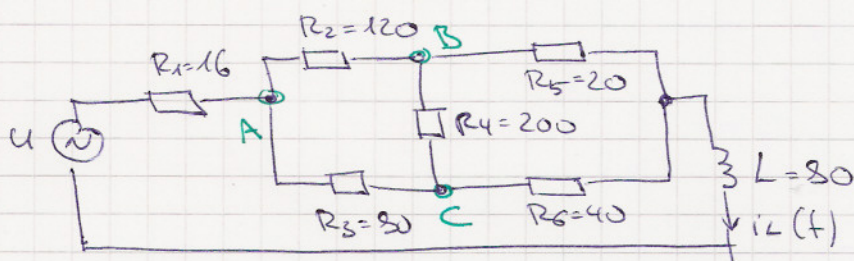 R2=120
B
R1=16
R5=20
A
R4=200
u
~
L=80
R3=80
C
R6=40
iL(t)